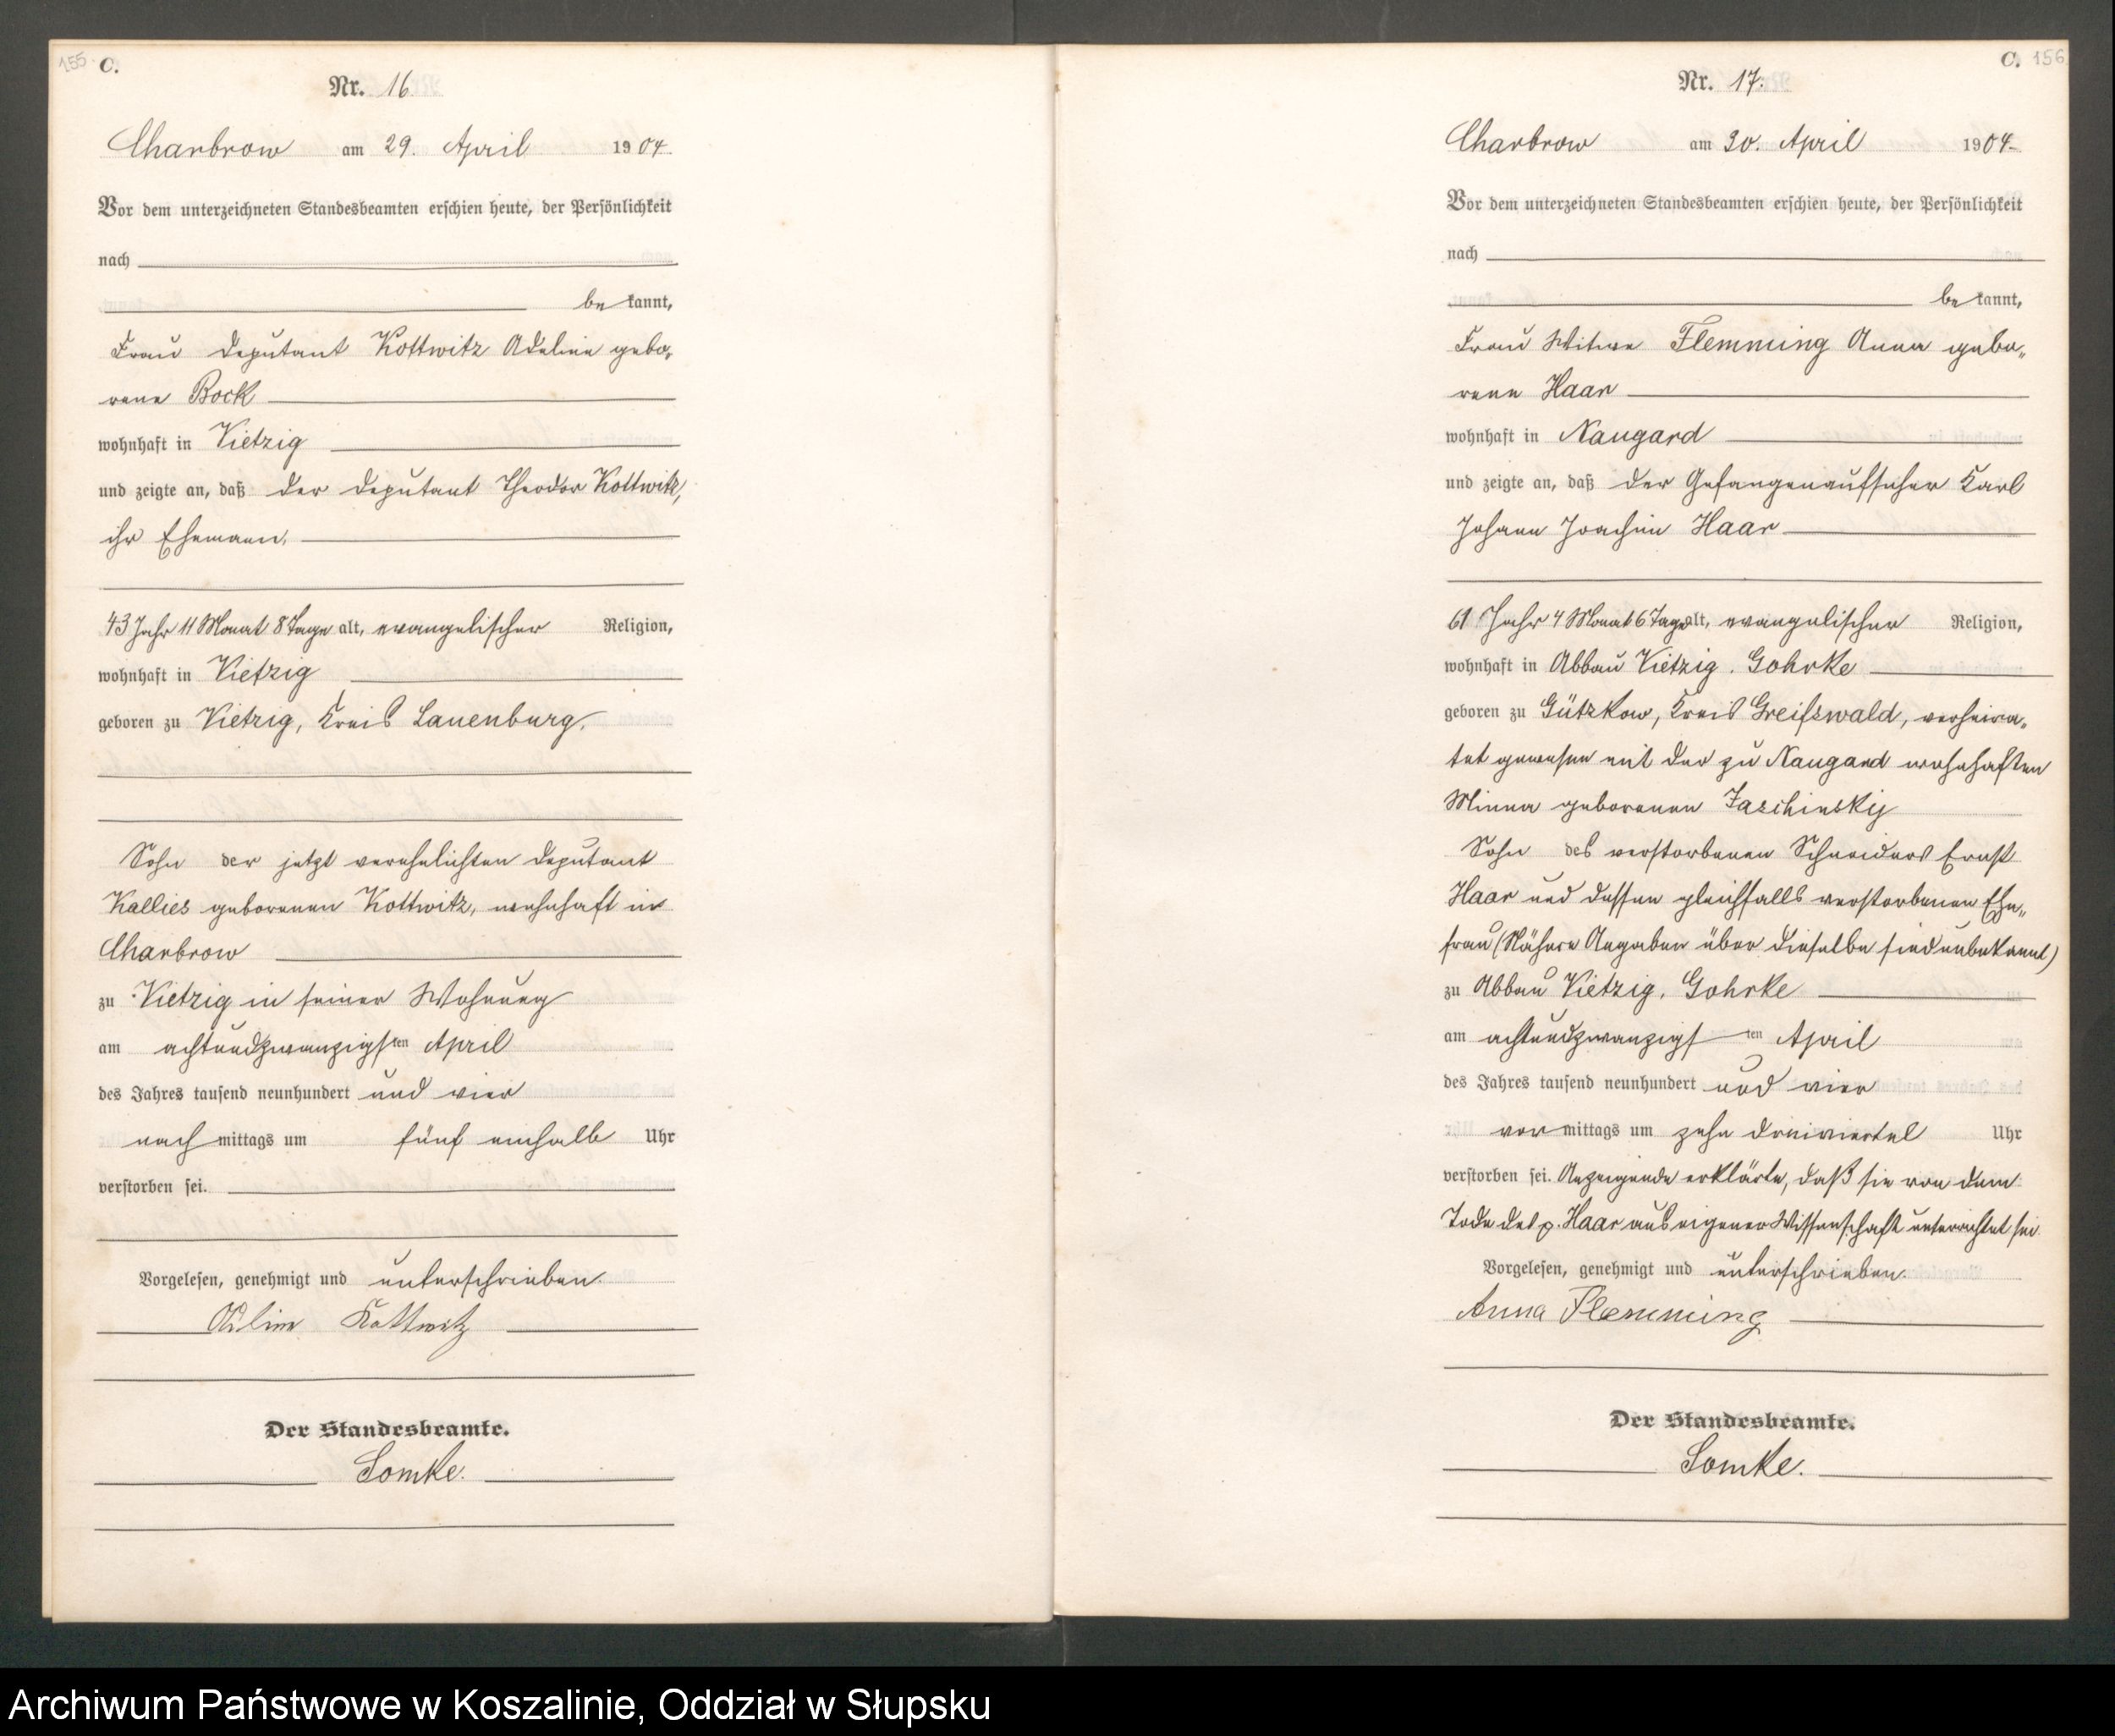 155 C.
Nr. 16
Charbrow am 29. April 1904
Vor dem unterzeichneten Standesbeamten erschien heute, der Persönlichkeit
nach
be kannt,
Frau Deputant Kottwitz Adeline gebo„
rene Bock
wohnhaft in Vietzig
und zeigte an, daß der Deputant Theodor Kottwitz,
ihr Ehemann,
43 Jahr 11 Monat 8 Tage alt, evangelischer Religion,
wohnhaft in Vietzig
geboren zu Vietzig, Kreis Lauenburg,
Sohn der jetzt verehelichten Deputant
Kallies geborenen Kottwitz, wohnhaft in
Charbrow
zu Vietzig in seiner Wohnung
am achtundzwanzigsten April
des Jahres tausend neunhundert und vier
nach mittags um fünf einhalb Uhr
verstorben sei.
Vorgelesen, genehmigt und unterschrieben.
Kottwitz
Der Standesbeamte.
Somke.
C. 156
Nr. 17.
Charbrow am 30. April 1904
Vor dem unterzeichneten Standesbeamten erschien heute, der Persönlichkeit
nach
be kannt,
Frau Witwe Flemming Anna gebo„
rene Haar
wohnhaft in Naugard
und zeigte an, daß der Gefangenaufseher Karl
Johann Joachim Haar
61 Jahr 4 Monat 6 Tage alt, evangelischer Religion,
wohnhaft in Abbau Vietzig. Gohrke
geboren zu Gützkow, Kreis Greifswald, verheira„
tet gewesen mit der zu Naugard wohnhaften
Minna geborenen Jaschinskÿ
Sohn des verstorbenen Schneiders Ernst
Haar und dessen gleichfalls verstorbenen Ehe„
frau (Nähere Angaben über dieselbe sind unbekannt)
zu Abbau Vietzig. Gohrke
am achtundzwanzigsten April
des Jahres tausend neunhundert und vier
vor mittags um zehn dreiviertel Uhr
verstorben sei. Anzeigende erklärte, daß sie von dem
Tode des p. Haar aus eigener Wissenschaft unterrichtet sei.
Vorgelesen, genehmigt und unterschrieben.
Anna Flemming
Der Standesbeamte.
Somke.
Archiwum Państwowe w Koszalinie, Oddział w Słupsku